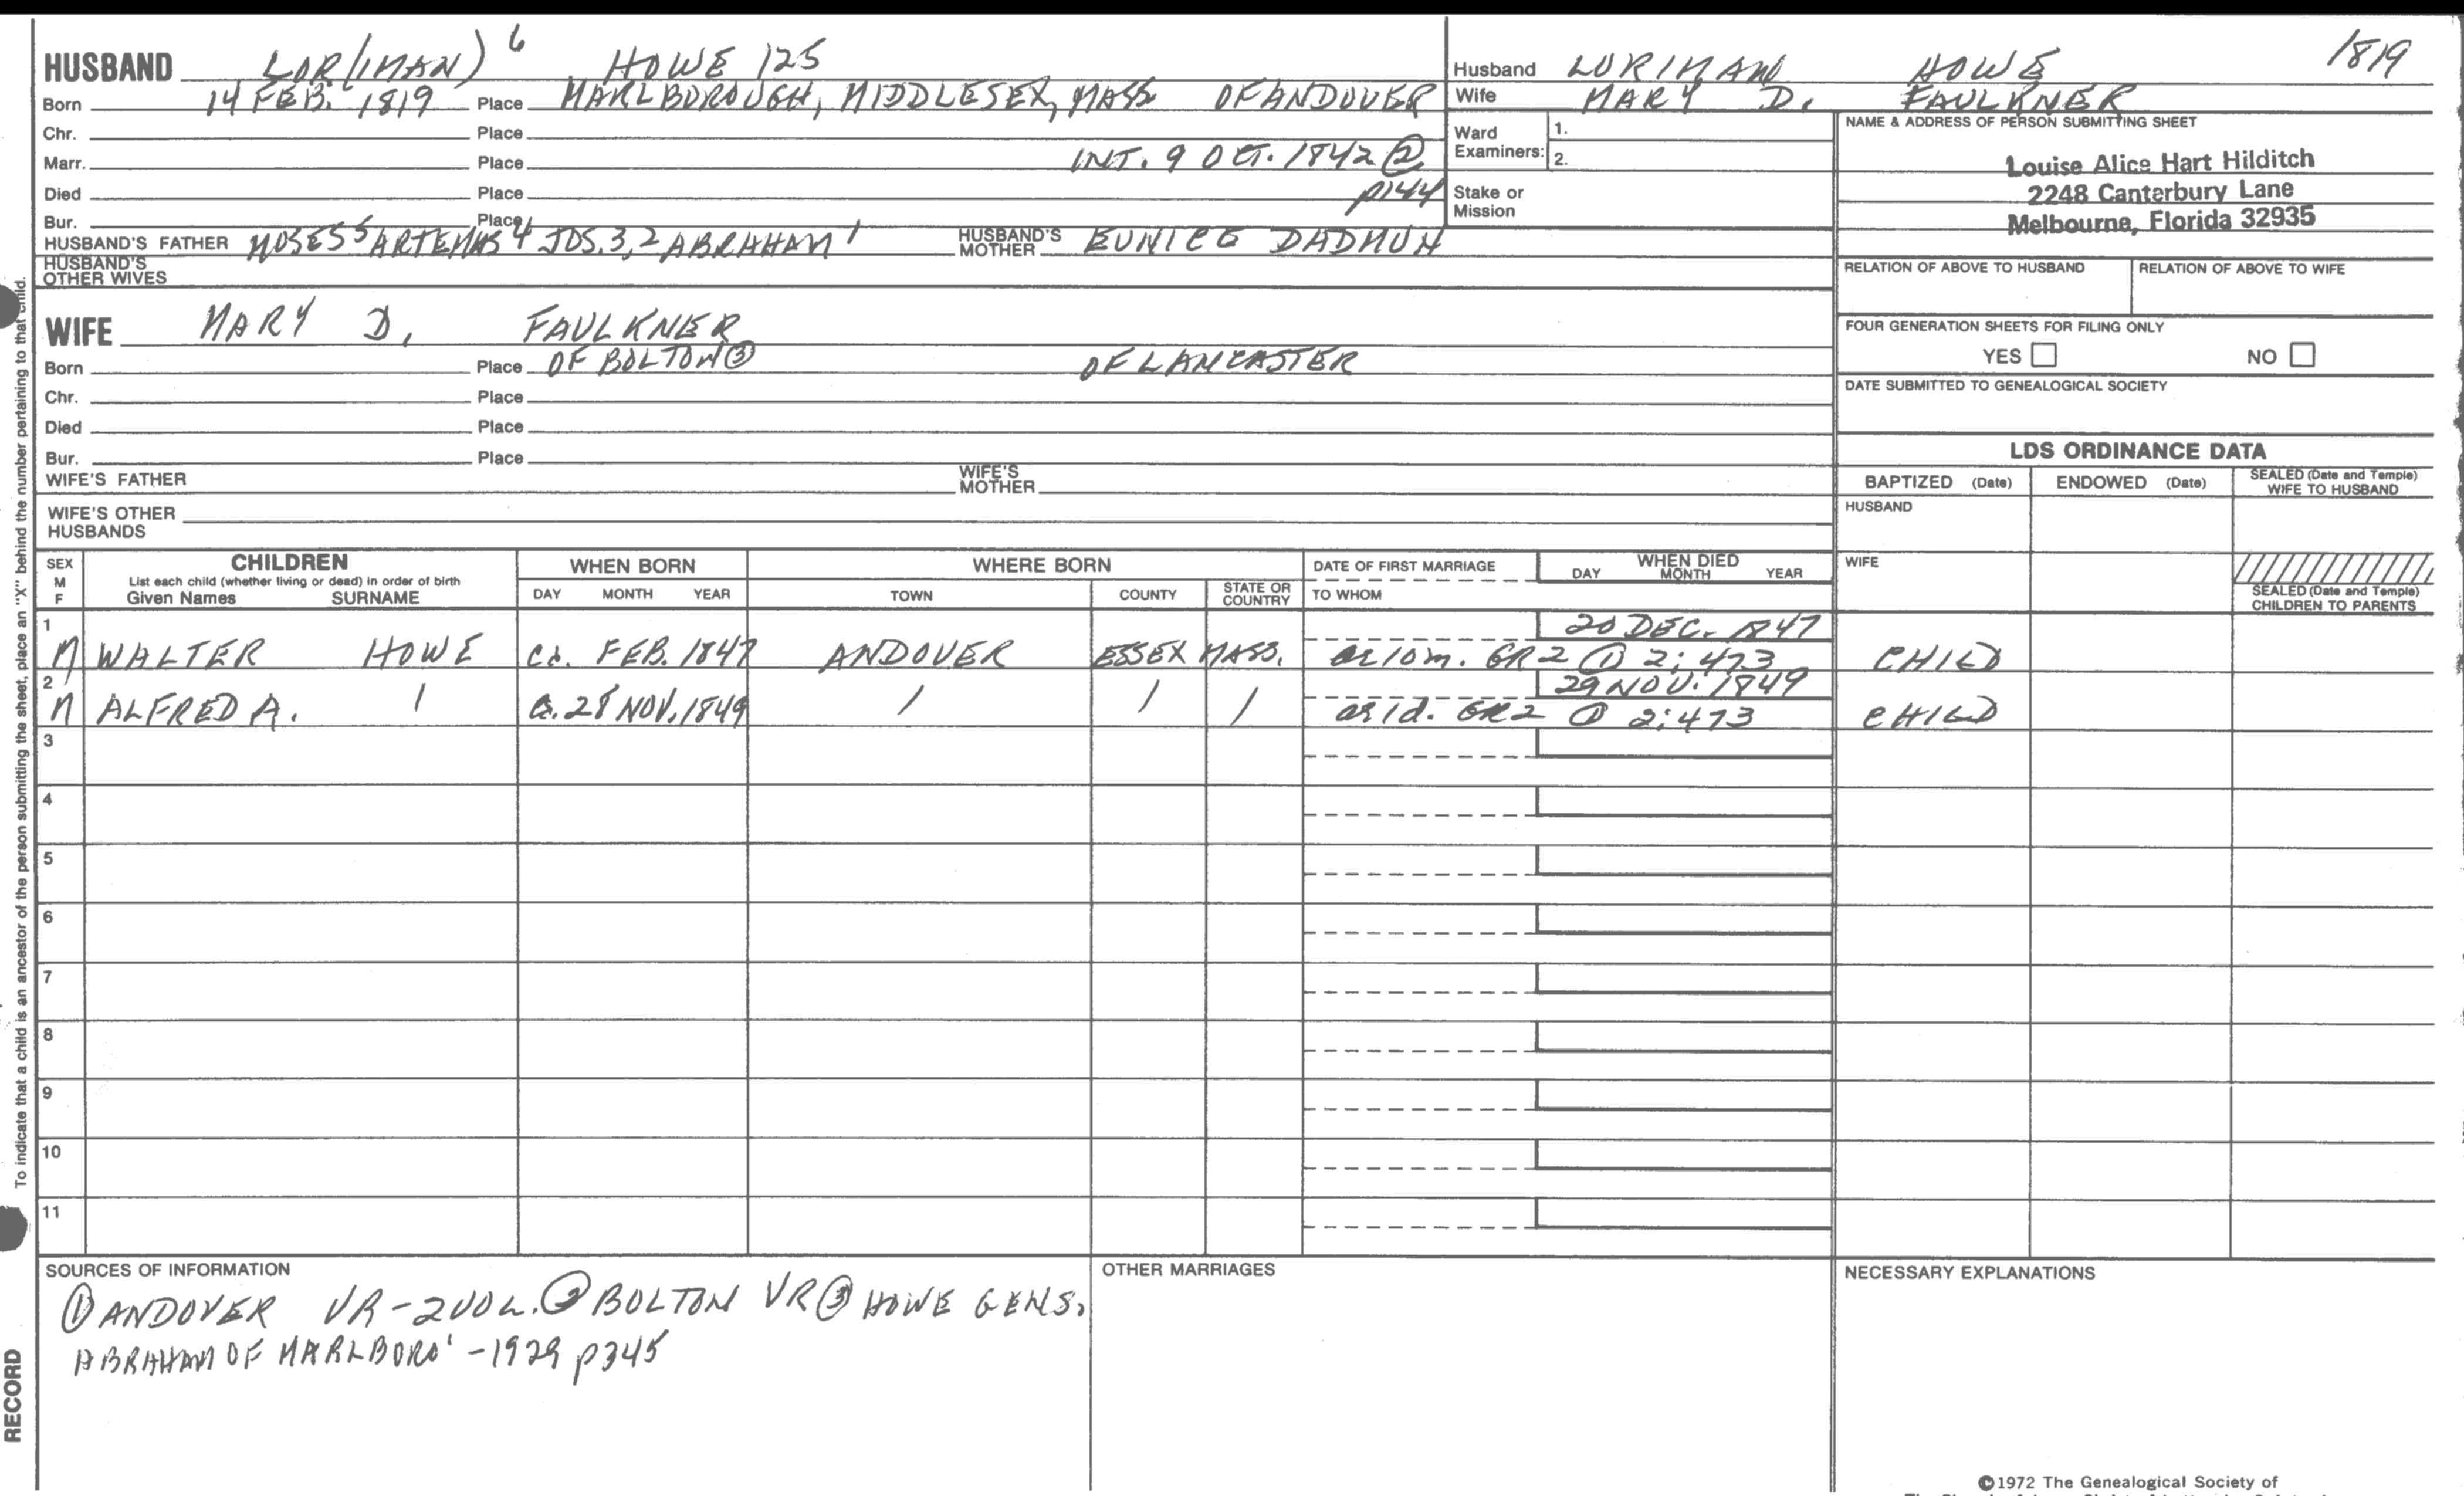 HUSBAND LOR(IMAN) 6 HOWE 125
Born 14 FEB. 1819 Place MARLBOROUGH, MIDDLESEX, MASS OF ANDOVER
Chr. Place
Marr. Place INT. 9 OCT. 1842 ②
Died Place p144
Bur. Place
HUSBAND'S FATHER MOSES 5 ARTEMAS 4 JOS. 3, 2 ABRAHAM 1 HUSBAND'S MOTHER EUNICE DADMUN
HUSBAND'S OTHER WIVES
Husband LORIMAN HOWE 1819
Wife MARY D. FAULKNER
Ward Examiners: 1.
2.
Stake or Mission
NAME & ADDRESS OF PERSON SUBMITTING SHEET
Louise Alice Hart Hilditch
2248 Canterbury Lane
Melbourne, Florida 32935
RELATION OF ABOVE TO HUSBAND RELATION OF ABOVE TO WIFE
FOUR GENERATION SHEETS FOR FILING ONLY
YES NO
DATE SUBMITTED TO GENEALOGICAL SOCIETY
WIFE MARY D. FAULKNER
Born Place OF BOLTON ③ OF LANCASTER
Chr. Place
Died Place
Bur. Place
WIFE'S FATHER WIFE'S MOTHER
WIFE'S OTHER HUSBANDS
LDS ORDINANCE DATA
BAPTIZED (Date) ENDOWED (Date) SEALED (Date and Temple) WIFE TO HUSBAND
HUSBAND
WIFE
SEALED (Date and Temple) CHILDREN TO PARENTS
SEX M F CHILDREN WHEN BORN WHERE BORN DATE OF FIRST MARRIAGE WHEN DIED
List each child (whether living or dead) in order of birth
Given Names SURNAME DAY MONTH YEAR TOWN COUNTY STATE OR COUNTRY TO WHOM DAY MONTH YEAR
1 20 DEC. 1847
M WALTER HOWE Ca. FEB. 1847 ANDOVER ESSEX MASS. ae 10m. GR2 ① 2:473 CHILD
2 29 NOV. 1849
M ALFRED A. / a. 28 NOV. 1849 / / / ae 1d. GR2 ① 2:473 CHILD
3
4
5
6
7
8
9
10
11
SOURCES OF INFORMATION
① ANDOVER VR-2VOL. ② BOLTON VR ③ HOWE GENS.
ABRAHAM OF MARLBORO' -1929 p345
OTHER MARRIAGES
NECESSARY EXPLANATIONS
©1972 The Genealogical Society of
To indicate that a child is an ancestor of the person submitting the sheet, place an "X" behind the number pertaining to that child.
RECORD